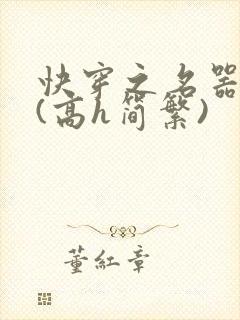 快穿之名器
(高h简繁)
董红章